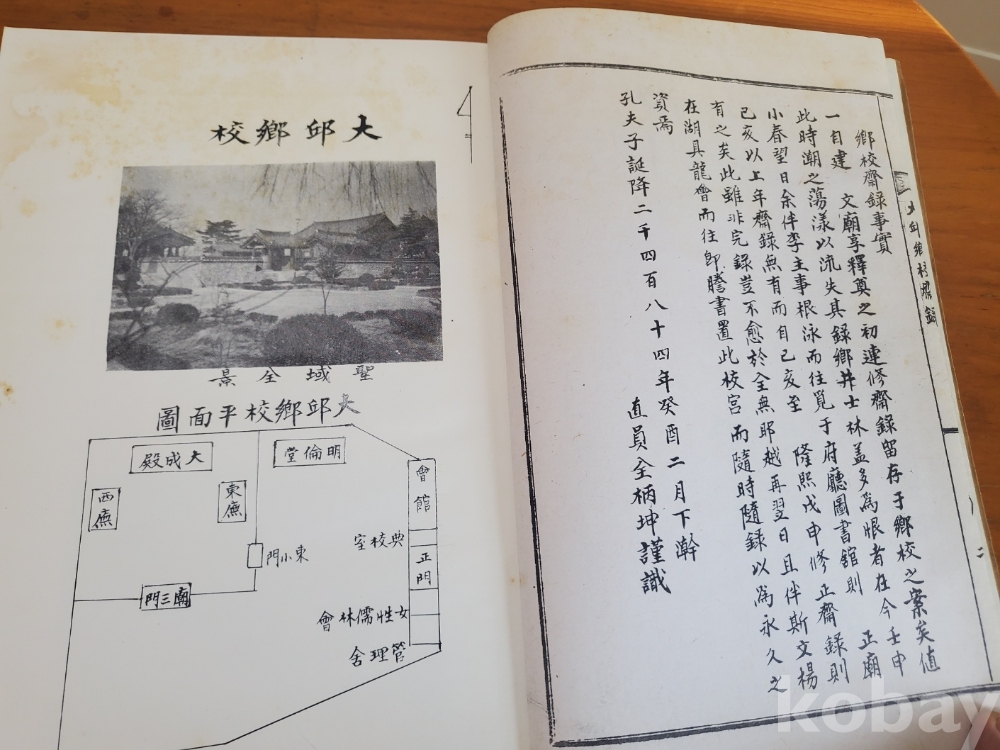 大邱鄕校
聖域全景
大邱鄕校平面圖
大成殿
明倫堂
西廡
東廡
會館
典校室
正門
東小門
廟三門
女性儒林會
管理舍
大邱鄕校齋錄
二
鄕校齋錄事實
一自建 文廟享釋奠之初連修齋錄留存于鄕校之案矣値
此時潮之蕩漾以流失其錄鄕井士林盖多爲恨者在今壬申
小春望日余伴李主事根泳而往覓于府廳圖書舘則 正廟
己亥以上年齋錄無有而自己亥至 隆熙戊申修正齋錄則
有之矣此雖非完錄豈不愈於全無耶越再翌日且伴斯文楊
在湖具龍會而往卽謄書置此校宮而隨時隨錄以爲永久之
資焉
孔夫子誕降二千四百八十四年癸酉二月下澣
直員全柄坤謹識
kobay